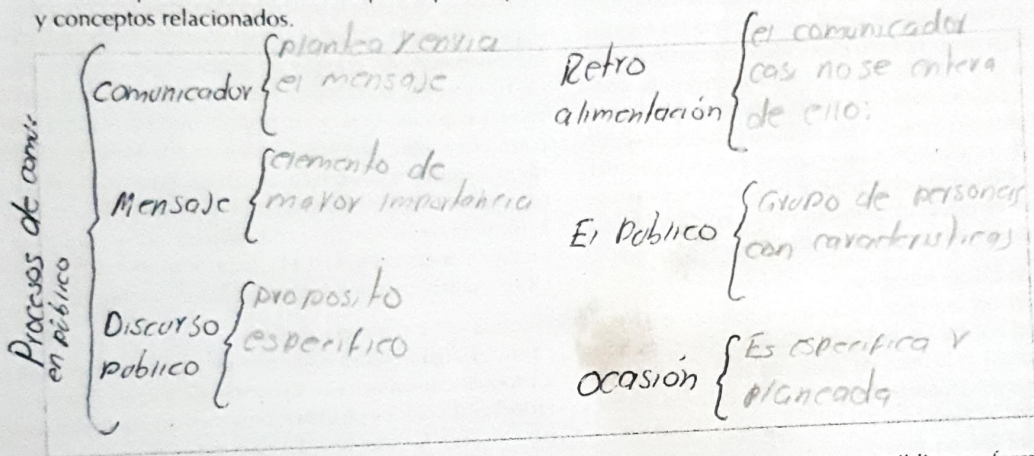 y conceptos relacionados.
Procesos de comu:
en público
Comunicador
plantea y envia
el mensaje
Mensaje
elemento de
mayor importancia
Discurso
publico
proposito
especifico
Retro
alimentación
el comunicador
casi no se entera
de ello:
El publico
Grupo de personas
con caracteristicas
ocasión
Es especifica y
planeada